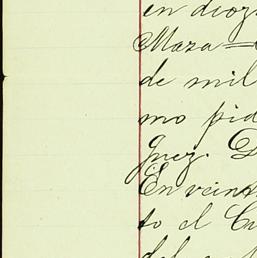 en dioz
Maza=
de mil
mo pid
guez. D
En veint
to el Cu
del